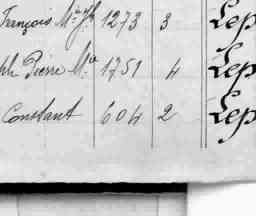 François M.ie Jh 1273 3 Lep
ph Pierre M.ie 1751 4 Lep
Constant 604 2 Lep